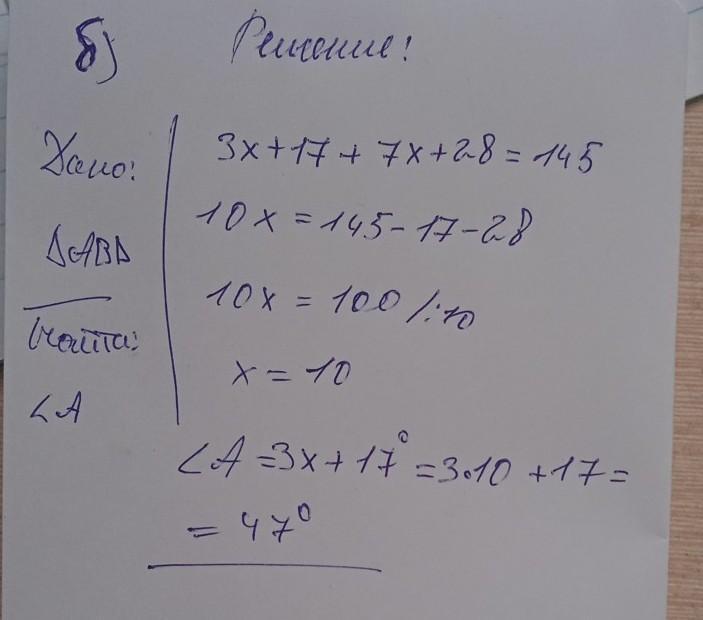 б) Решение:
Дано:
ΔABD
Найти:
∠A
3x+17+7x+28=145
10x=145-17-28
10x=100 /:10
x=10
∠A=3x+17°=3·10+17=
=47°